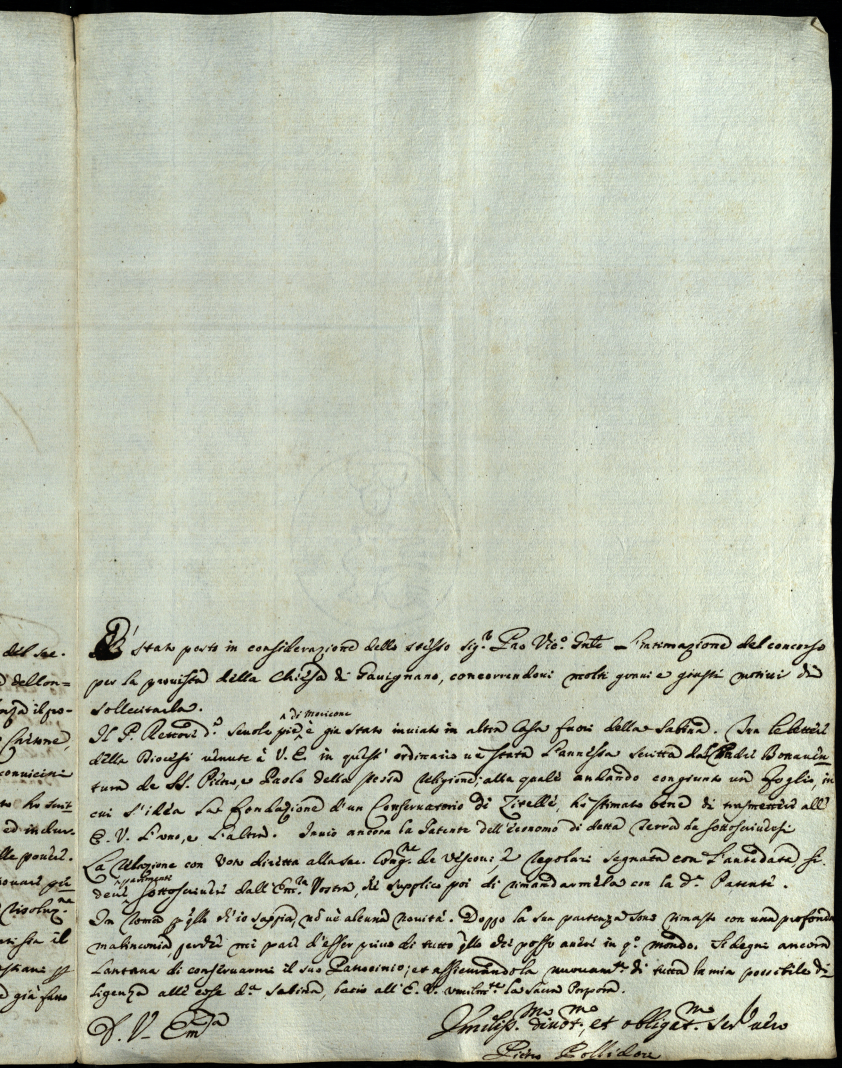 del sac.
dell'on=
il pro-
convicini
ed in
delle
già fatto
E' stato posto in considerazione dello stesso Sig.r Pro Vic.o Gnle L'intimazione del concorso
per la provista della Chiesa di Gavignano, concorrendovi molti gravi e giusti motivi di
sollecitarla.
Il P. Rettore d.e Scuole pie di Moricone è già stato inviato in altra Casa fuori della Sabina. Tra le lettere
della Diocesi venute à V. E. in quest' ordinario v'è stata l'annessa scritta dal Padre Bonaven
tura de SS. Pietro, e Paolo della stessa Religione: alla quale andando congiunto un foglio, in
cui s'idea la fondazione d'un Conservatorio di Zitelle, hò stimato bene di trasmettere all'
E. V. l'uno, e l'altra. Invio ancora la Patente dell'economo di detta Terra da sottoscriversi
La Relazione con voto diretta alla sac. Cong.ne de Vescovi, e Regolari segnata con l'antedata si
deve sottoscrivere dall'Em.za Vostra, che supplico poi di rimandarmela con la d.a Patente.
In Roma p quello ch'io sappia, nè v'è alcuna novità. Doppo la sua partenza sono rimasto con una profonda
malinconia perche mi pare d'esser privo di tutto quello che posso avere in q.o mondo. Si degni ancora
lontana di conservarmi il suo Patrocinio; et assicurandola nuovam.te di tutta la mia possibile di-
ligenza alle cose d.a Sabina, bacio all'E. V. umilm.te la Sacra Porpora.
D. V. Em.za
Umiliss.mo divot.mo, et obligat.mo Ser.
Pietro Pollidoro